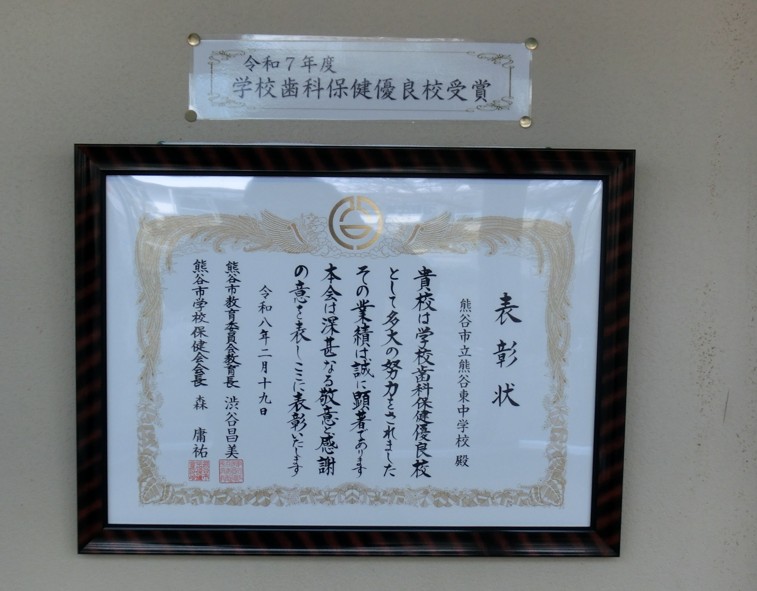 令和7年度
学校歯科保健優良校受賞
表彰状
熊谷市立熊谷東中学校 殿
貴校は学校歯科保健優良校
として多大の努力をされました
その業績は誠に顕著であります
本会は深甚なる敬意と感謝
の意を表しここに表彰いたします
令和八年二月十九日
熊谷市教育委員会教育長 渋谷昌美
熊谷市学校保健会会長 森 庸祐